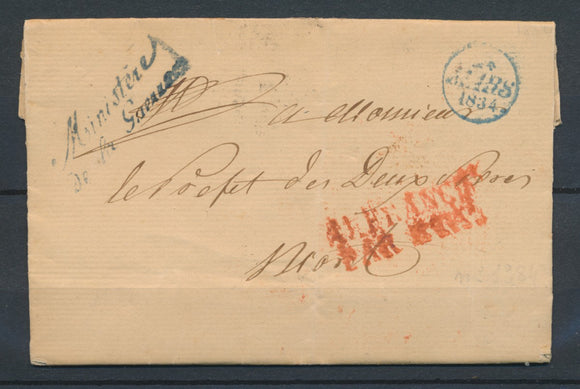 Ministère
de la Guerre
MARS
1834
A Monsieur
le Préfet des Deux Sèvres
AFFRANCHI
PAR ÉTAT
Niort